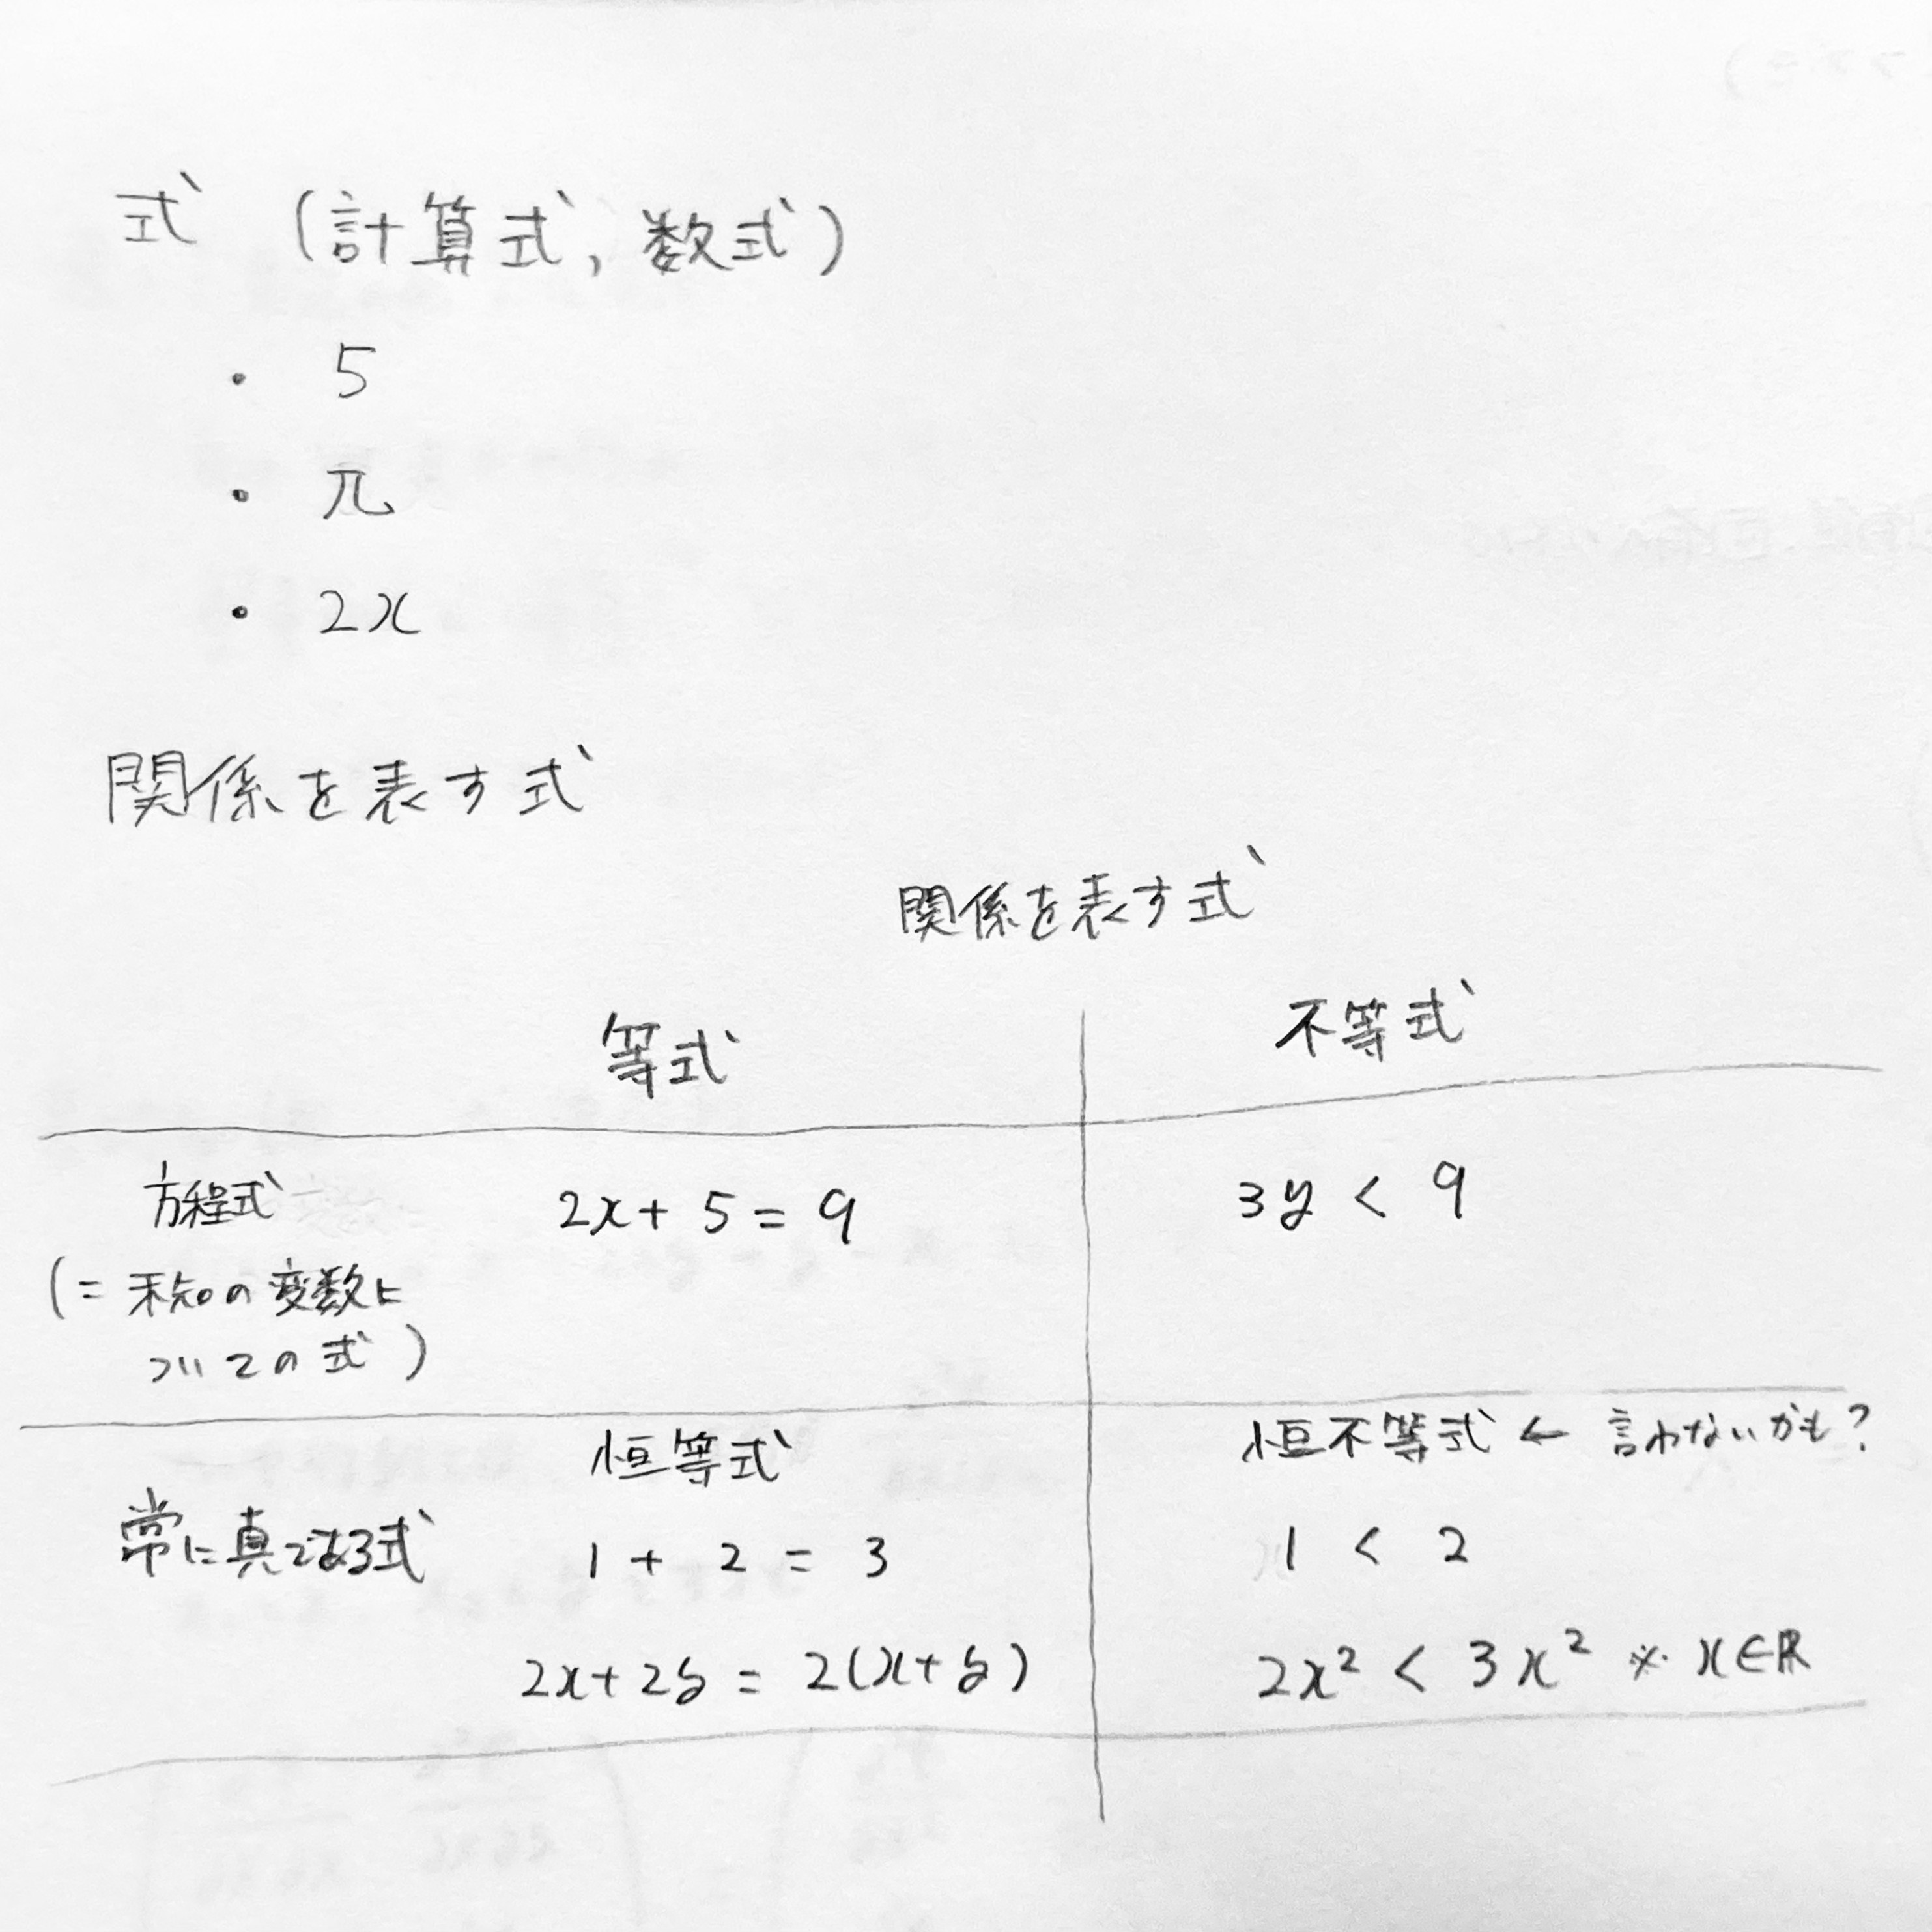 式 (計算式, 数式)
・ 5
・ π
・ 2x
関係を表す式
関係を表す式
等式 不等式
方程式 2x + 5 = 9 3y < 9
(= 未知の変数に
ついての式)
恒等式 恒不等式 ← 言わないかも?
常に真である式 1 + 2 = 3 1 < 2
2x + 2y = 2(x+y) 2x² < 3x² ※ x∈ℝ